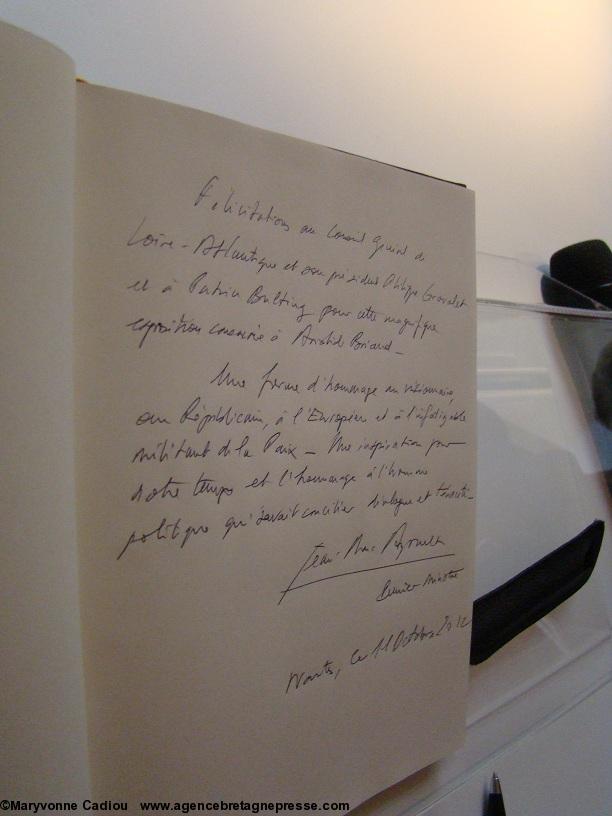 Félicitations au Conseil Général de
Loire-Atlantique et son président Philippe Grosvalet
et à Patrice Boulting pour cette magnifique
exposition consacrée à Aristide Briand_
Une forme d'hommage au visionnaire,
au Républicain, à l'Européen et à l'infatigable
militant de la Paix_ Une inspiration pour
notre temps et l'hommage à l'homme
politique qui savait concilier dialogue et ténacité_
Jean-Marc Ayrault
Premier Ministre
Nantes, le 11 Octobre 2012
©Maryvonne Cadiou www.agencebretagnepresse.com